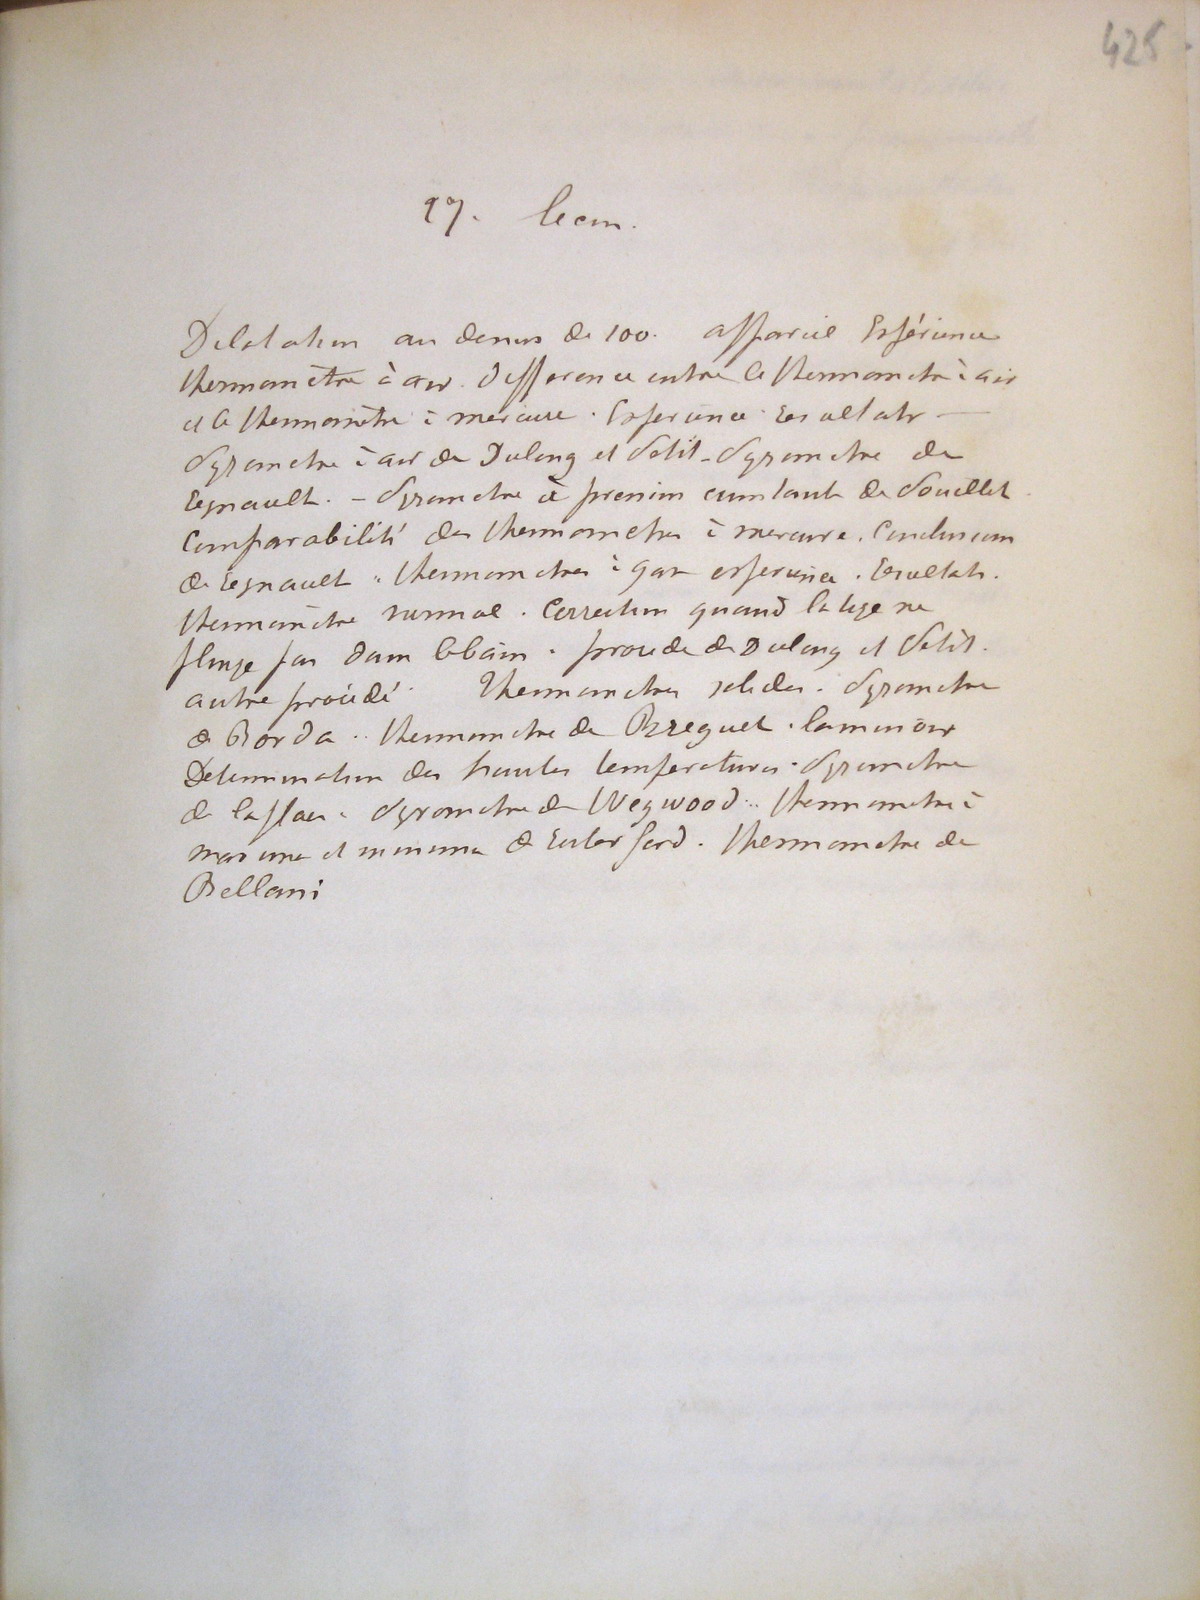 425
17. leçon.
Dilatation au dessus de 100. appareil Expérience
thermomètre à air. Difference entre le thermometre à air
et le thermomètre à mercure. Experience Resultats —
Pyrometre à air de Dulong et Petit - Pyrometre de
Regnault. - Pyrometre à pression constante de Pouillet.
Comparabilité des thermometres à mercure. Conclusions
de Regnault. thermometres à gaz experience. Resultats.
thermomètre normal. Correction quand la tige ne
plonge pas dans le bain. procede de Dulong et Petit.
autre procédé. Thermometres solides. Pyrometre
de Borda. thermometre de Breguet.
Determination des hautes temperatures. Pyrometre
de laplace. Pyrometre de Wegwood. thermometre à
maxima et minima de Rutherford. thermometre de
Bellani